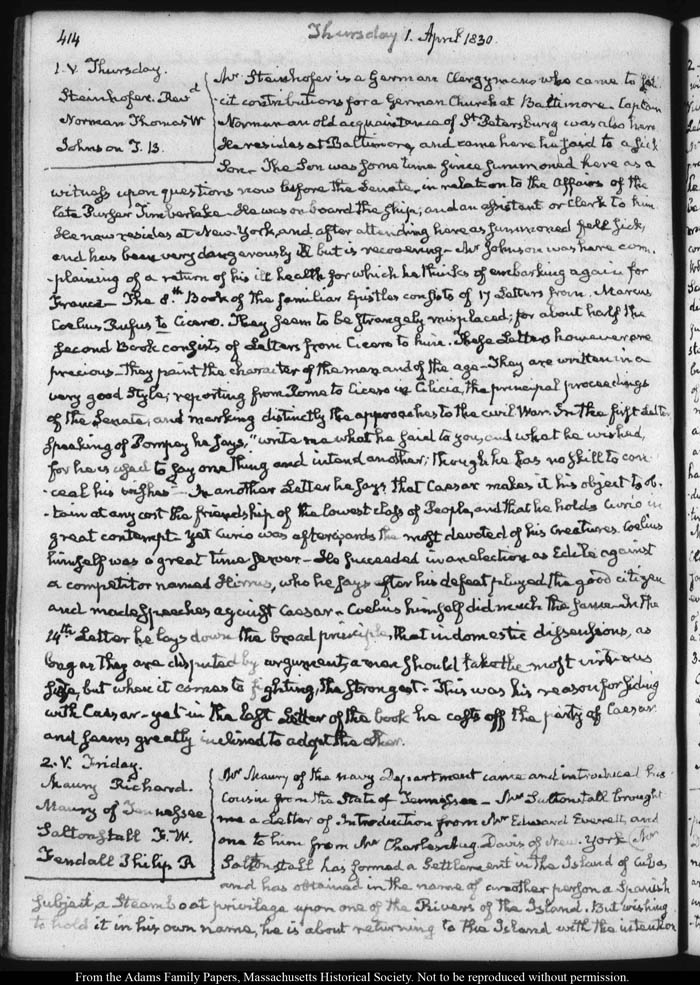 414
Thursday 1. April 1830.
1. V. Thursday.
Steinhofer. Revd
Norman Thomas W
Johnson J. B.
Mr Steinhofer is a German Clergyman who came to soli-
cit contributions for a German Church at Baltimore. Captain
Norman an old acquaintance of St Petersburg was also here
He resides at Baltimore, and came here he said to a sick
Son. The Son was some time since summoned here as a
witness upon questions now before the Senate, in relation to the affairs of the
late Purser Timberlake. He was on board the ship, and an assistant or clerk to him
He now resides at New York, and after attending here as summoned fell sick,
and has been very dangerously ill but is recovering. Mr Johnson was here com-
-plaining of a return of his ill health for which he thinks of embarking again for
France — The 8.th Book of the familiar Epistles consists of 17 Letters from Marcus
Coelius Rufus to Cicero. They seem to be strangely misplaced; for about half the
second Book consists of Letters from Cicero to him. These Letters however are
precious. They paint the character of the man and of the age. They are written in a
very good style; reporting from Rome to Cicero in Cilicia, the principal proceedings
of the Senate, and marking distinctly the approaches to the civil War. In the first Letter
speaking of Pompey he says, "write me what he said to you, and what he wished,
for he is used to say one thing and intend another; though he has no skill to con-
-ceal his wishes" — In another Letter he says that Caesar makes it his object to ob-
-tain at any cost the friendship of the lowest class of People, and that he holds Curio in
great contempt — Yet Curio was afterwards the most devoted of his creatures. Coelius
himself was a great time server — He succeeded in an election as Edile against
a competitor named Hirrus, who he says after his defeat played the good citizen
and made speeches against Caesar. Coelius himself did much the same. In the
14th Letter he lays down the broad principle, that in domestic dissensions, as
long as they are disputed by argument, a man should take the most virtuous
side, but when it comes to fighting, the strongest. This was his reason for siding
with Caesar — yet in the last Letter of the book he casts off the party of Caesar
and seems greatly inclined to adopt the other.
2. V. Friday.
Maury Richard.
Maury of Tennessee
Saltonstall F. W.
Fendall Philip R
Mr Maury of the navy Department came and introduced his
Cousin from the State of Tennessee — Mr Saltonstall brought
me a Letter of Introduction from Mr Edward Everett, and
one to him from Mr Charles Aug. Davis of New York. Mr
Saltonstall has formed a settlement in the Island of Cuba,
and has obtained in the name of another person a Spanish
subject, a Steamboat privilege upon one of the Rivers of the Island. But wishing
to hold it in his own name, he is about returning to the Island with the intention
From the Adams Family Papers, Massachusetts Historical Society. Not to be reproduced without permission.